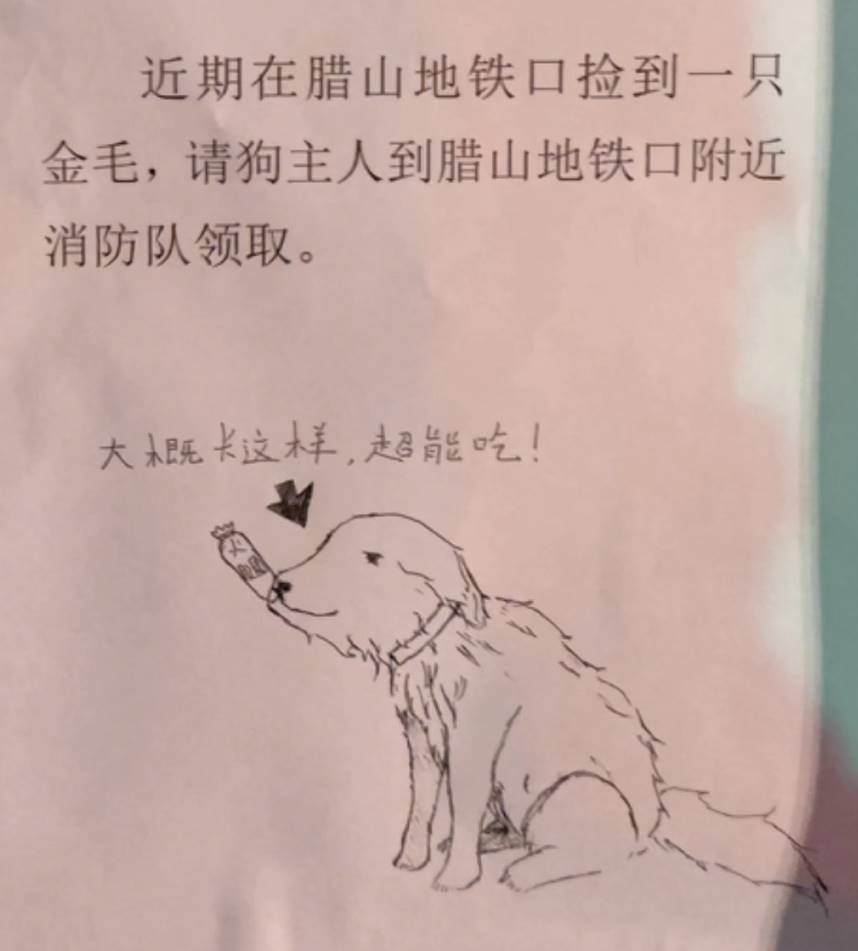 近期在腊山地铁口捡到一只
金毛，请狗主人到腊山地铁口附近
消防队领取。
大概长这样，超能吃！
火
腿